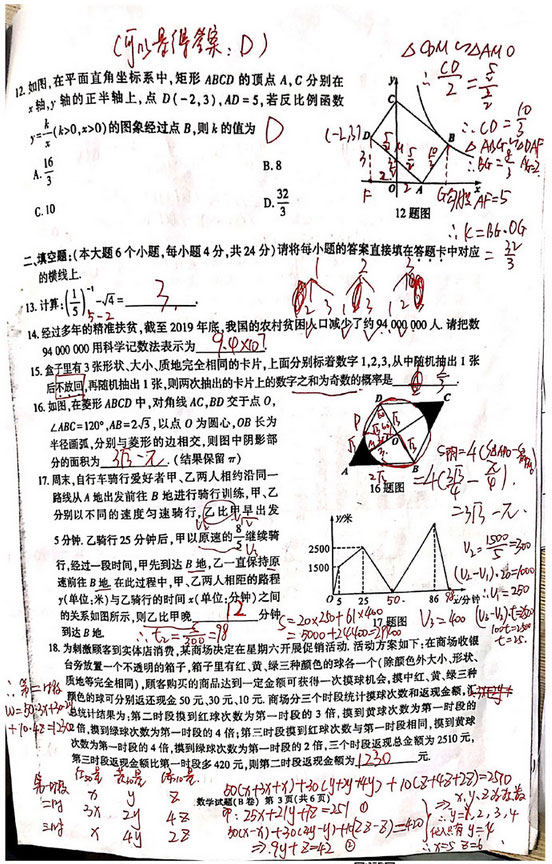 (可以是得答案:D)
△CDM∽△AMO
12.如图,在平面直角坐标系中,矩形 ABCD 的顶点 A,C 分别在
x 轴,y 轴的正半轴上,点 D(-2,3),AD=5,若反比例函数
y=k/x(k>0,x>0)的图象经过点 B,则 k 的值为 D
A. 16/3
B. 8
C. 10
D. 32/3
12 题图
∴CD=10/3
∴K=BG·OG
=32/3
二、填空题:(本大题 6 个小题,每小题 4 分,共 24 分)请将每小题的答案直接填在答题卡中对应
的横线上.
13.计算:(1/5)⁻¹-√4= 3 .
5-2
14.经过多年的精准扶贫,截至 2019 年底,我国的农村贫困人口减少了约 94 000 000 人.请把数
94 000 000 用科学记数法表示为 9.4×10⁷ .
15.盒子里有 3 张形状、大小、质地完全相同的卡片,上面分别标着数字 1,2,3,从中随机抽出 1 张
后不放回,再随机抽出 1 张,则两次抽出的卡片上的数字之和为奇数的概率是
16.如图,在菱形 ABCD 中,对角线 AC,BD 交于点 O,
∠ABC=120°,AB=2√3,以点 O 为圆心,OB 长为
半径画弧,分别与菱形的边相交,则图中阴影部
分的面积为 3√3-π .(结果保留 π)
16 题图
=3√3-π.
17.周末,自行车骑行爱好者甲、乙两人相约沿同一
路线从 A 地出发前往 B 地进行骑行训练,甲、乙
分别以不同的速度匀速骑行,乙比甲早出发
5 分钟.乙骑行 25 分钟后,甲以原速的 8/5 继续骑
行,经过一段时间,甲先到达 B 地,乙一直保持原
速前往 B 地.在此过程中,甲、乙两人相距的路程
y(单位:米)与乙骑行的时间 x(单位:分钟)之间
的关系如图所示,则乙比甲晚 12 分钟
到达 B 地.
y/米
2500
1500
O 5 25 50 86 x/分钟
17 题图
V₂=1500/5=300
(V₂-V₁)·20=1000
∴V₁=250
V₃=400
S=20×250+61×400
=5000+24400=29400
18.为刺激顾客到实体店消费,某商场决定在星期六开展促销活动.活动方案如下:在商场收银
台旁放置一个不透明的箱子,箱子里有红、黄、绿三种颜色的球各一个(除颜色外大小、形状、
质地等完全相同),顾客购买的商品达到一定金额可获得一次摸球机会,摸中红、黄、绿三种
颜色的球可分别返还现金 50 元、30 元、10 元.商场分三个时段统计摸球次数和返现金额,汇
总统计结果为:第二时段摸到红球次数为第一时段的 3 倍,摸到黄球次数为第一时段的
2 倍,摸到绿球次数为第一时段的 4 倍;第三时段摸到红球次数与第一时段相同,摸到黄球
次数为第一时段的 4 倍,摸到绿球次数为第一时段的 2 倍,三个时段返现总金额为 2510 元,
第三时段返现金额比第一时段多 420 元,则第二时段返现金额为 1230 元.
x y z
3x 2y 4z
x 4y 2z
50(x+3x+x)+30(y+2y+4y)+10(z+4z+2z)=2510
⇒9y+z=42 ②
∴x=5 z=6
数学试题(B 卷) 第 3 页(共 6 页)